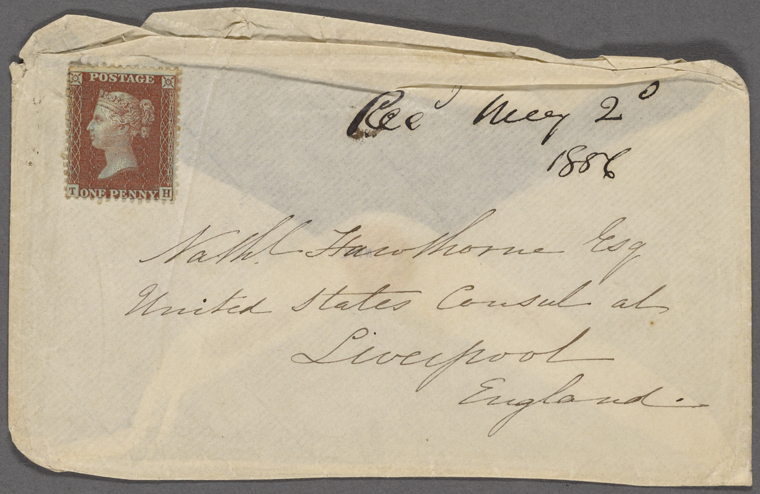 POSTAGE
T ONE PENNY H
Recd May 2d
1856
Nathl. Hawthorne Esq
United States Consul at
Liverpool
England.